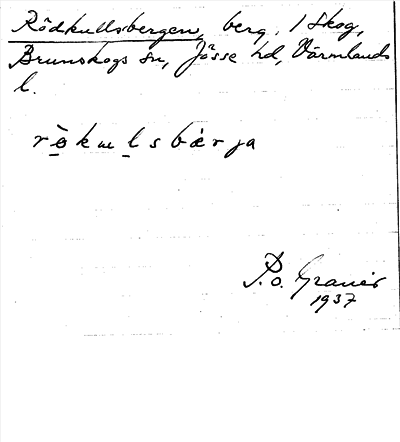 Rödkullsbergen, berg, i Skog,
Brunskogs sn, Jösse hd, Värmlands
l.
rö̀kulsbærja
P. o. Granér
1937